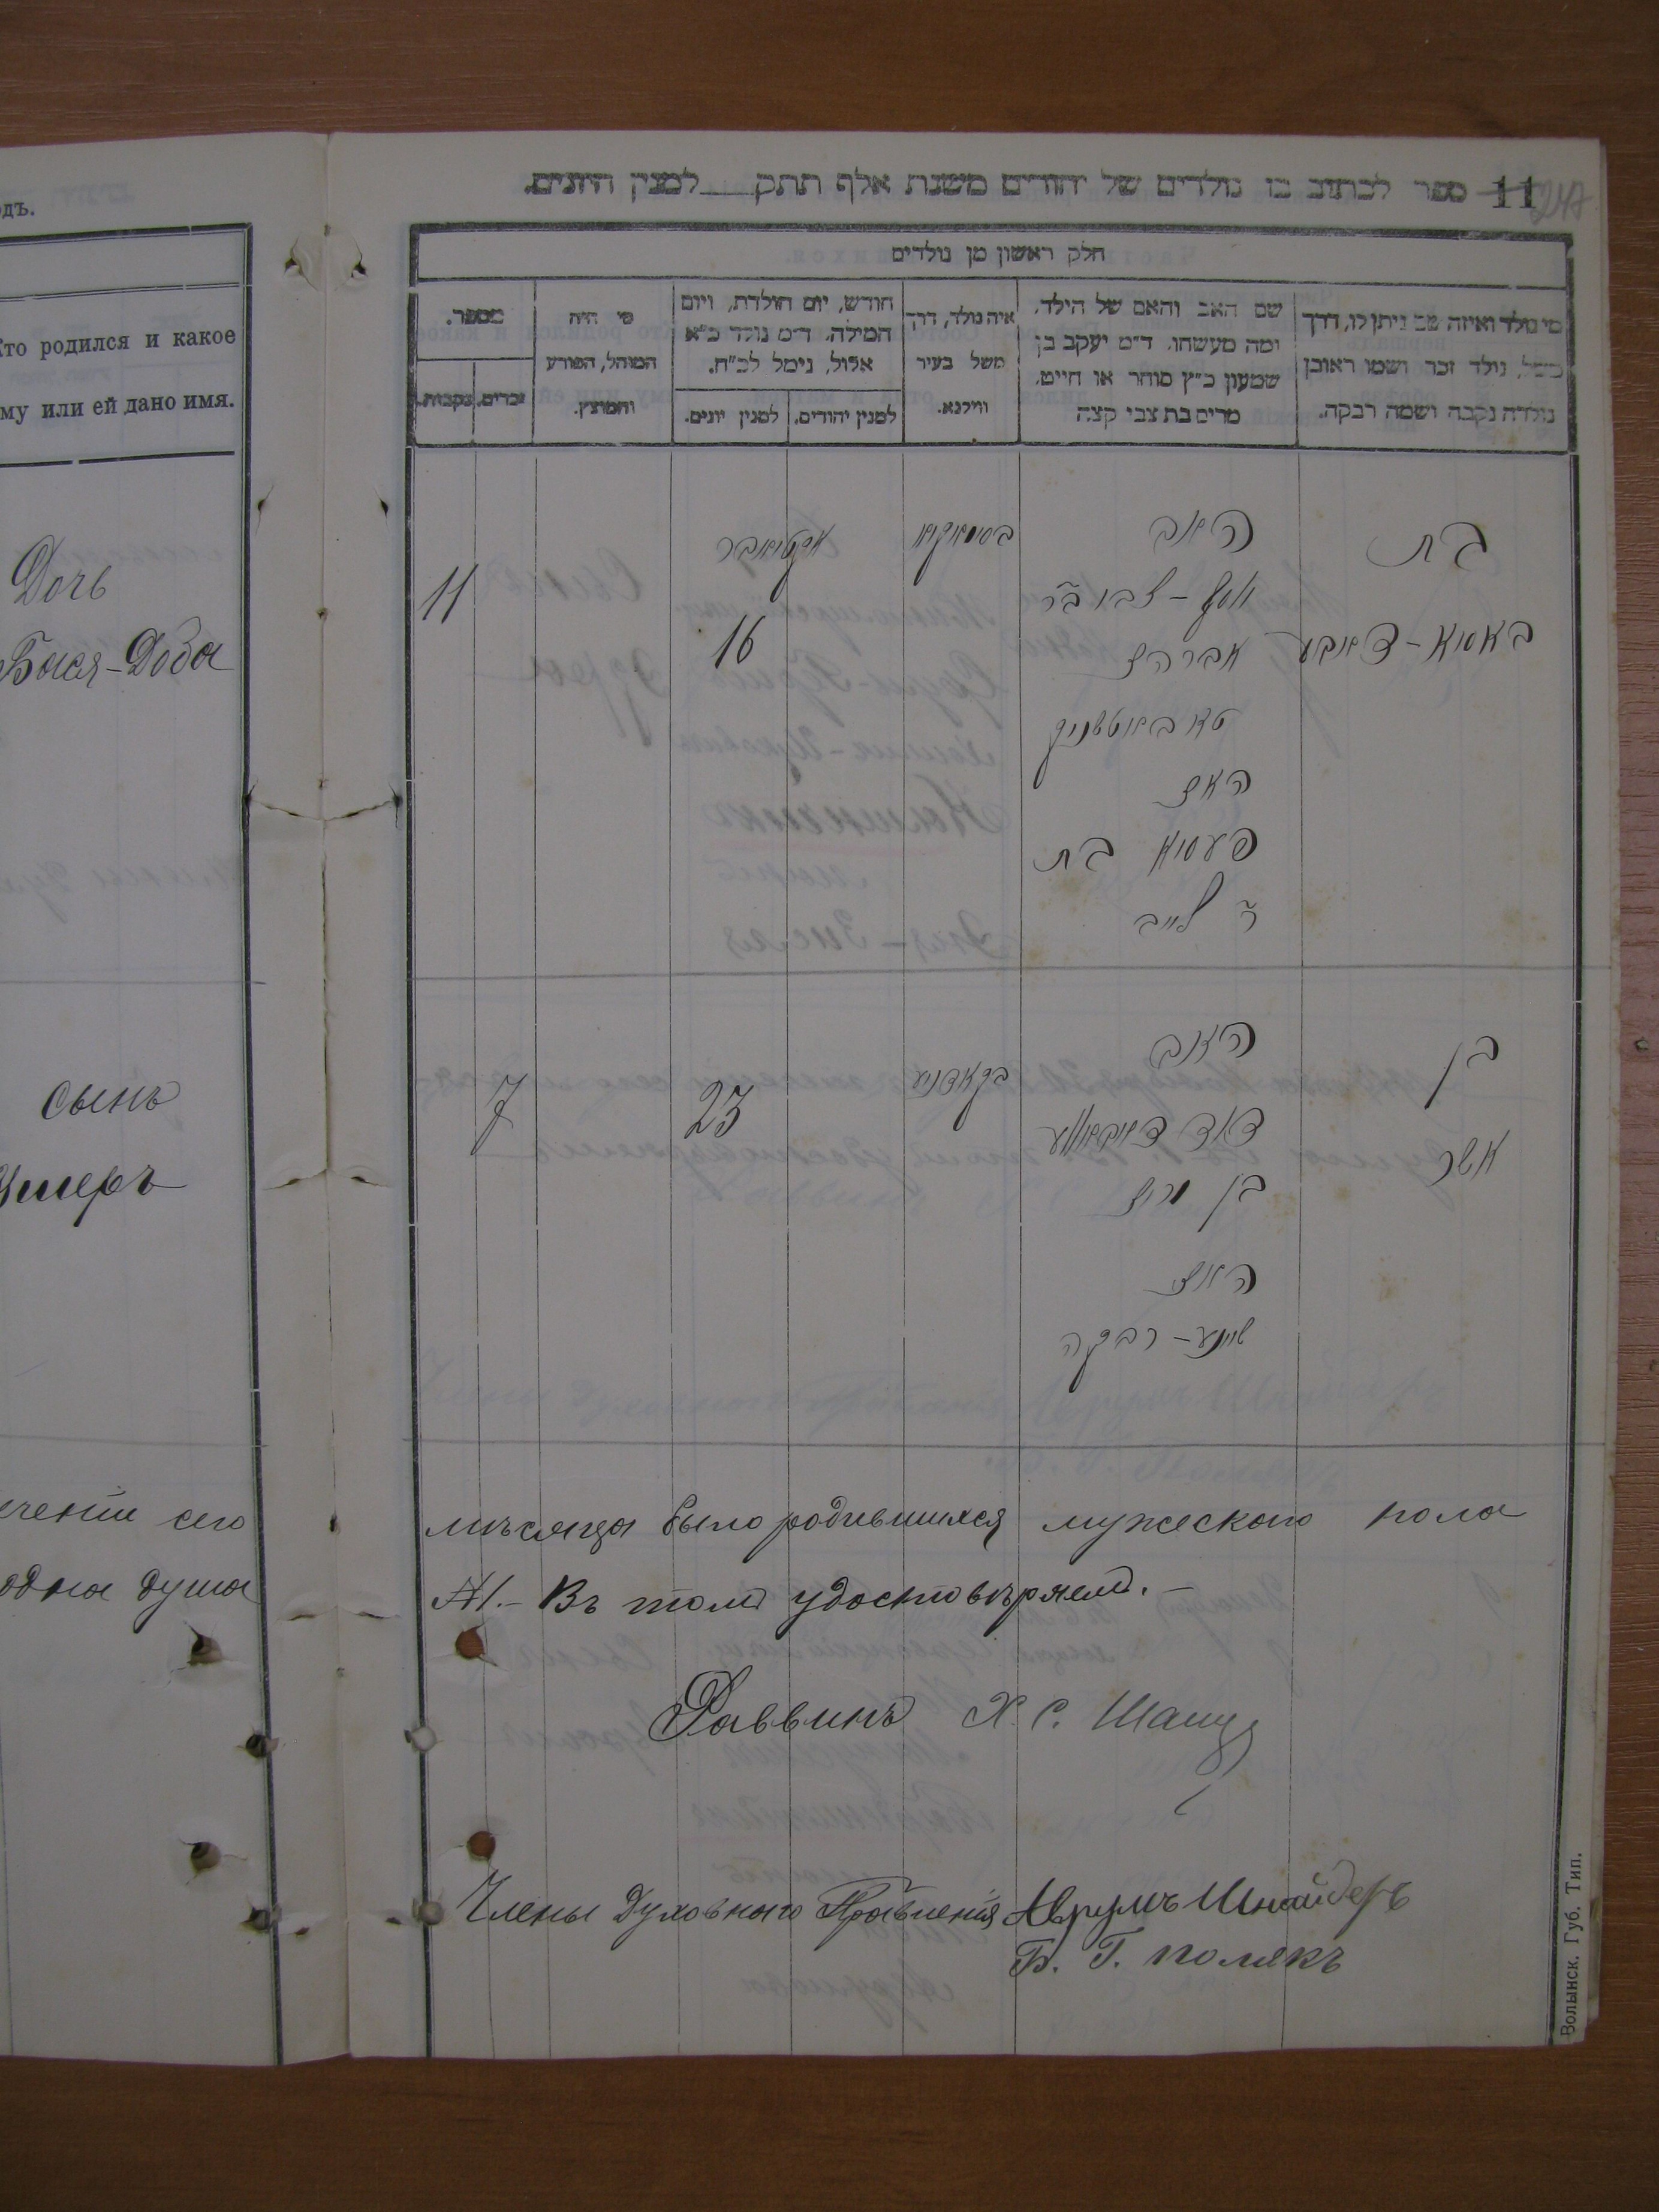 одъ.
Кто родился и какое
ему или ей дано имя.
Дочь
Бася-Доба
сынъ
Ушеръ
ечении сего
одна душа
11 ספר לכתוב בו נולדים של יהודים משנת אלף תתק למנין היונים.
חלק ראשון מן נולדים
מי נולד ואיזה שם ניתן לו, דרך
משל, נולד זכר ושמו ראובן
נולדה נקבה ושמה רבקה.
שם האב והאם של הילד,
ומה מעשהו. ד"מ יעקב בן
שמעון כ"ץ סוחר או חייט,
מרים בת צבי קצה
איה נולד, דרך
משל בעיר
ווילנא.
חודש, יום הולדת, ויום
המילה. ד"מ נולד כ"א
אלול, נימל לכ"ח.
למנין יהודים.
למנין יונים.
מי היה
המוהל, הפורע
והמוצץ.
מספר.
זכרים.
נקבות.
בת
באסיא-דאבע
האב
אברהם
האם
פעסיא בת
ר' לייב
אקטיאבר
16
11
בן
אשר
האב
בן חיים
האם
שיינע-רבקה
23
7
мѣсяца было родившихся мужеского пола
№1.- Въ томъ удостовѣряемъ.-
Раввинъ Х. С.
Члены Духовнаго Правленія Аврумъ Шнайдеръ
Б. Г. Полякъ
Волынск. Губ. Тип.